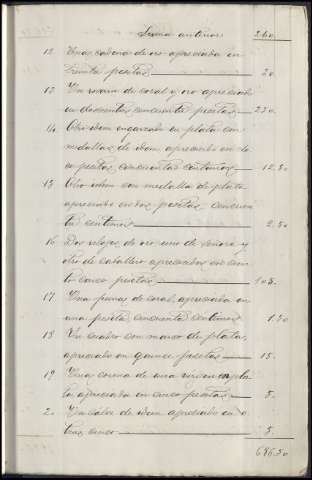 Suma anterior 260.
12. Una cadena de oro apreciada en
treinta pesetas 30.
13. Un rosario de coral y oro apreciado
en doscientas cincuenta pesetas 250.
14. Otro idem engarzado en plata con
medallas de idem apreciado en do
ce pesetas, cincuenta centimos 12.50
15. Otro idem con medalla de plata
apreciado en dos pesetas cincuen
ta centimos 2.50
16. Dos relojes de oro uno de señora y
otro de caballero apreciados en cien
to cinco pesetas 105.
17. Una de coral apreciada en
una peseta cincuenta centimos 1.50
18. Un cuadro con marco de plata,
apreciado en quince pesetas 15.
19. Una corona de una virgen en pla
ta apreciada en cinco pesetas 5.
20. de idem apreciado en o
tras cinco 5.
686.50